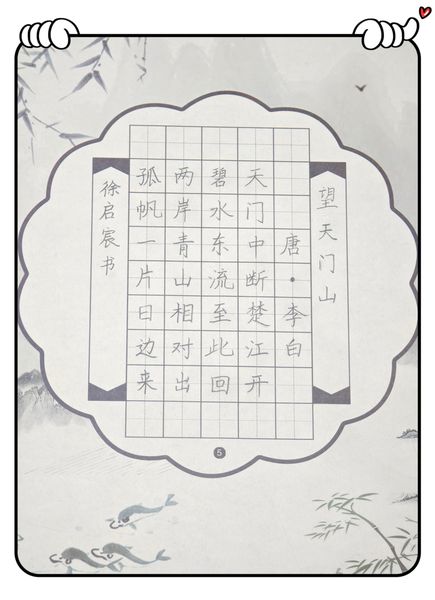 望天门山
唐·李白
天门中断楚江开
碧水东流至此回
两岸青山相对出
孤帆一片日边来
徐启宸书
5